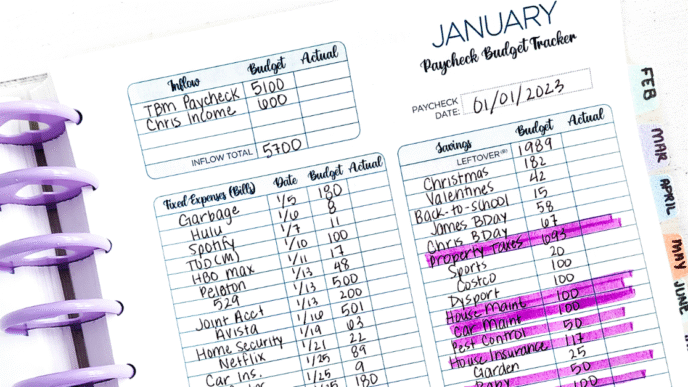 JANUARY
Paycheck Budget Tracker
PAYCHECK DATE: 01/01/2023
Inflow Budget Actual
TBM Paycheck 5100
Chris Income 600
INFLOW TOTAL 5700
Fixed Expenses (Bills) Date Budget Actual
Garbage 1/5 180
Hulu 1/6 8
Spotify 1/7 11
TUD(M) 1/10 100
HBO max 1/11 17
Peloton 1/13 48
529 1/13 500
Joint Acct 1/13 200
Avista 1/16 501
Home Security 1/19 63
Netflix 1/21 22
Car Ins. 1/25 89
1/25 9
180
Savings Budget Actual
LEFTOVER 1989
Christmas 182
Valentines 42
Back-to-school 15
James BDay 58
Chris BDay 67
Property Taxes 693
Sports 20
Costco 100
Dysport 100
House Maint 100
Car Maint 100
Pest Control 50
House Insurance 117
Garden 25
Baby 50
100
FEB
MAR
APRIL
MAY
JUNE